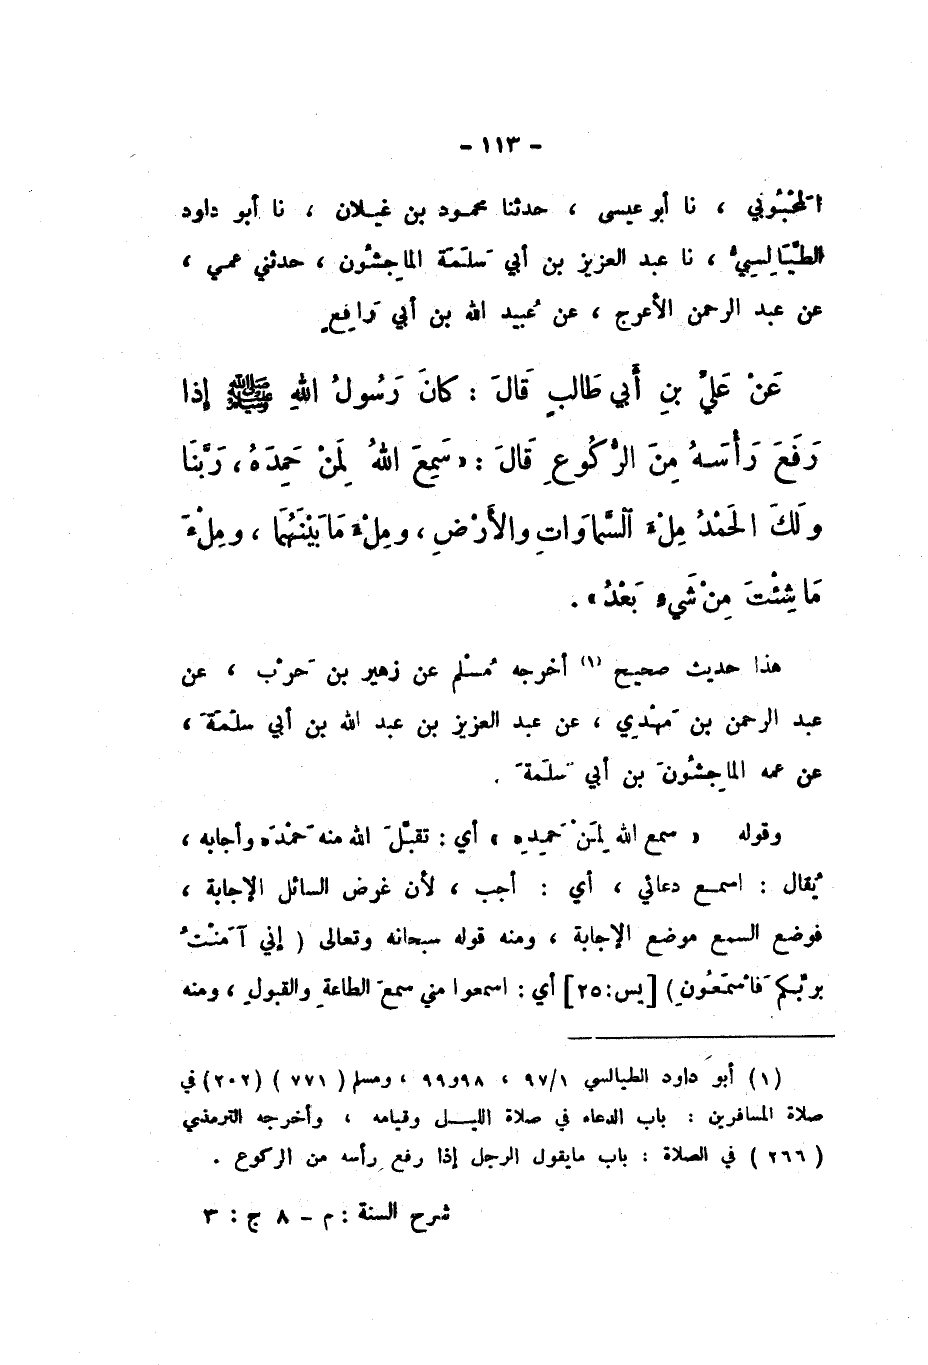 - ١١٣ -
المَحْبُوبُي ، نا أبو عيسى ، حدثنا محمود بن غيلان ، نا أبو داود
الطَّيَالِسِيُّ ، نا عبد العزيز بن أبي سَلَمَة الماجِشُون ، حدثني عمي ،
عن عبد الرحمن الأعرج ، عن عُبيد الله بن أبي رَافِعٍ
عَنْ عَلِيِّ بنِ أَبي طَالبٍ قَالَ : كانَ رَسُولُ اللهِ ﷺ إذا
رَفَعَ رَأْسَهُ مِنَ الرُّكُوعِ قَالَ : « سَمِعَ اللهُ لِمَنْ حَمِدَهُ ، رَبَّنَا
ولَكَ الحَمْدُ مِلْءَ السَّمَاوَاتِ والأَرْضِ ، ومِلْءَ مَا بَيْنَهُمَا ، ومِلْءَ
مَا شِئْتَ مِنْ شَيْءٍ بَعْدُ » .
هذا حديث صحيح (١) أخرجه مُسْلم عن زهير بن حَرْب ، عن
عبد الرحمن بن مَهْدِي ، عن عبد العزيز بن عبد الله بن أبي سَلَمَةَ ،
عن عمه الماجِشُونَ بن أبي سَلَمةَ .
وقوله « سمع الله لِمَنْ حَمِدِه » أي : تقبَّلَ الله منه حَمْدَه وأجابه ،
يُقال : اسمع دعائي ، أي : أجب ، لأن غرض السائل الإجابة ،
فوضع السمع موضع الإجابة ، ومنه قوله سبحانه وتعالى ( إني آمَنْتُ
بربِّكم فَاسْمَعُونِ ) [ يس : ٢٥ ] أي : اسمعوا مني سمعَ الطاعةِ والقبولِ ، ومنه
(١) أبو داود الطيالسي ٩٧/١ ، ٩٨و٩٩ ، ومسلم ( ٧٧١ ) (٢٠٢) في
صلاة المسافرين : باب الدعاء في صلاة الليل وقيامه ، وأخرجه الترمذي
( ٢٦٦ ) في الصلاة : باب مايقول الرجل إذا رفع رأسه من الركوع .
شرح السنة : م - ٨ ج : ٣